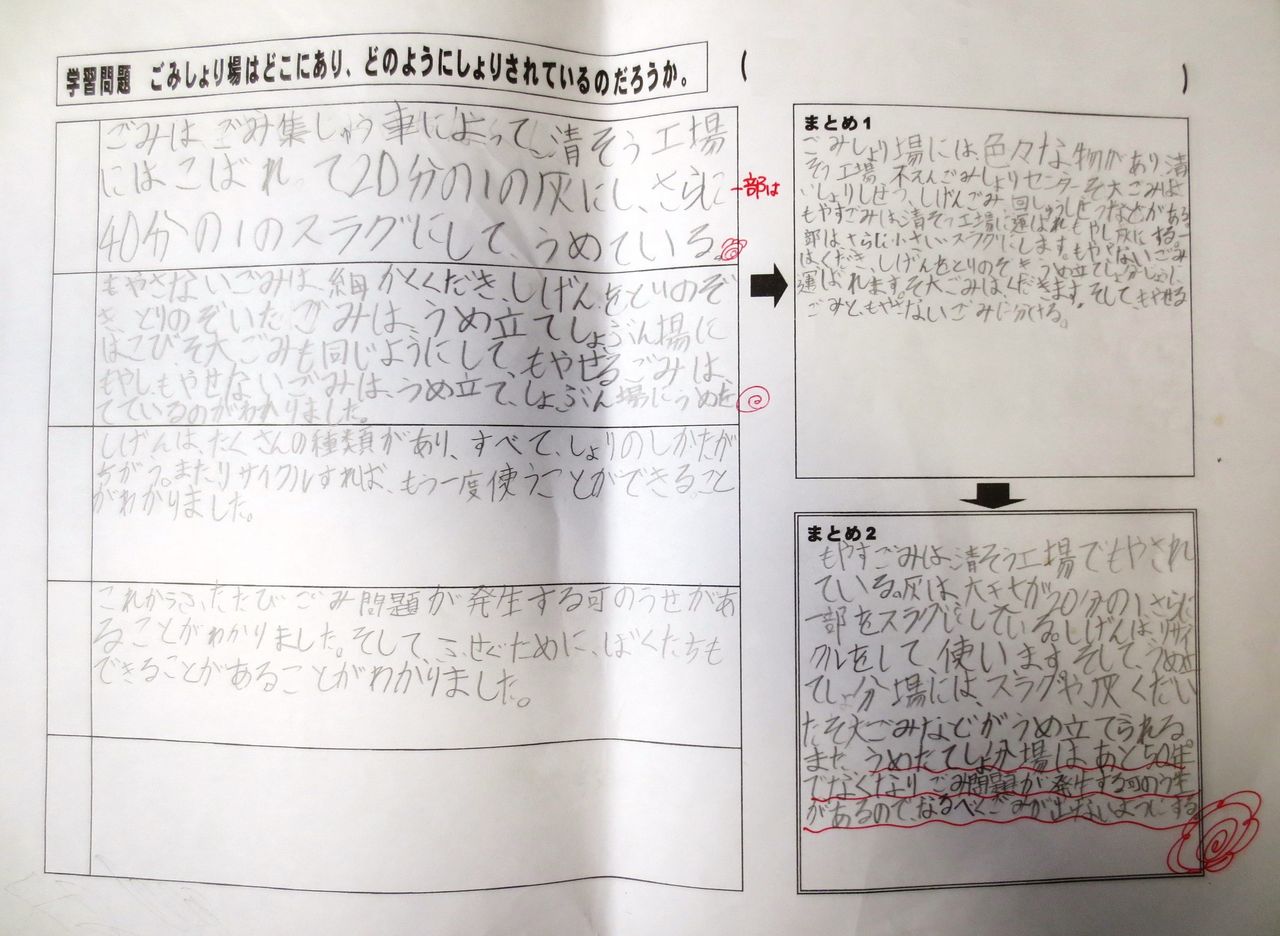 学習問題 ごみしょり場はどこにあり、どのようにしょりされているのだろうか。
(
)
ごみは、ごみ集しゅう車によって、清そう工場
にはこばれって20分の1の灰にし、さらに
一部は
40分の1のスラグにして、うめている。
もやさないごみは、細かくくだき、しげんをとりのぞ
き、とりのぞいたごみは、うめ立てしょぶん場に
はこび、そ大ごみも同じようにして、もやせるごみは、
もやし、もやせないごみは、うめ立て、しょぶん場にうめた
てているのがわかりました。
しげんは、たくさんの種類があり、すべて、しょりのしかたが
ちがう。またリサイクルすれば、もう一度使うことができること
がわかりました。
これからふたたびごみ問題が発生する可のうせがあ
ることがわかりました。そして、ふせぐために、ぼくたちも
できることがあることがわかりました。
まとめ1
ごみしょり場には、色々な物があり、清
そう工場、不ねんごみしょりセンター そ大ごみは
いしょりしせつ、しげんごみ回しゅうしせつなどがある。
もやすごみは、清そう工場に運ばれもやし灰にする。一
部はさらに小さいスラグにします。もやさないごみ
はくだき、しげんをとりのぞき、うめ立てしょ分しょに
運ばれます。そ大ごみはくだきます。そして、もやせる
ごみと、もやさないごみに分ける。
まとめ2
もやすごみは、清そう工場でもやされ
ている。灰は、大きさが20分の1、さらに
一部をスラグにしている。しげんは、リサイ
クルをして、使います。そして、うめ立
てしょ分場には、スラグや灰くだい
たそ大ごみなどがうめ立てられる。
また、うめたてしょ分場は、あと50年
でなくなり ごみ問題が発生する可のう生
があるので、なるべくごみが出ないようにする